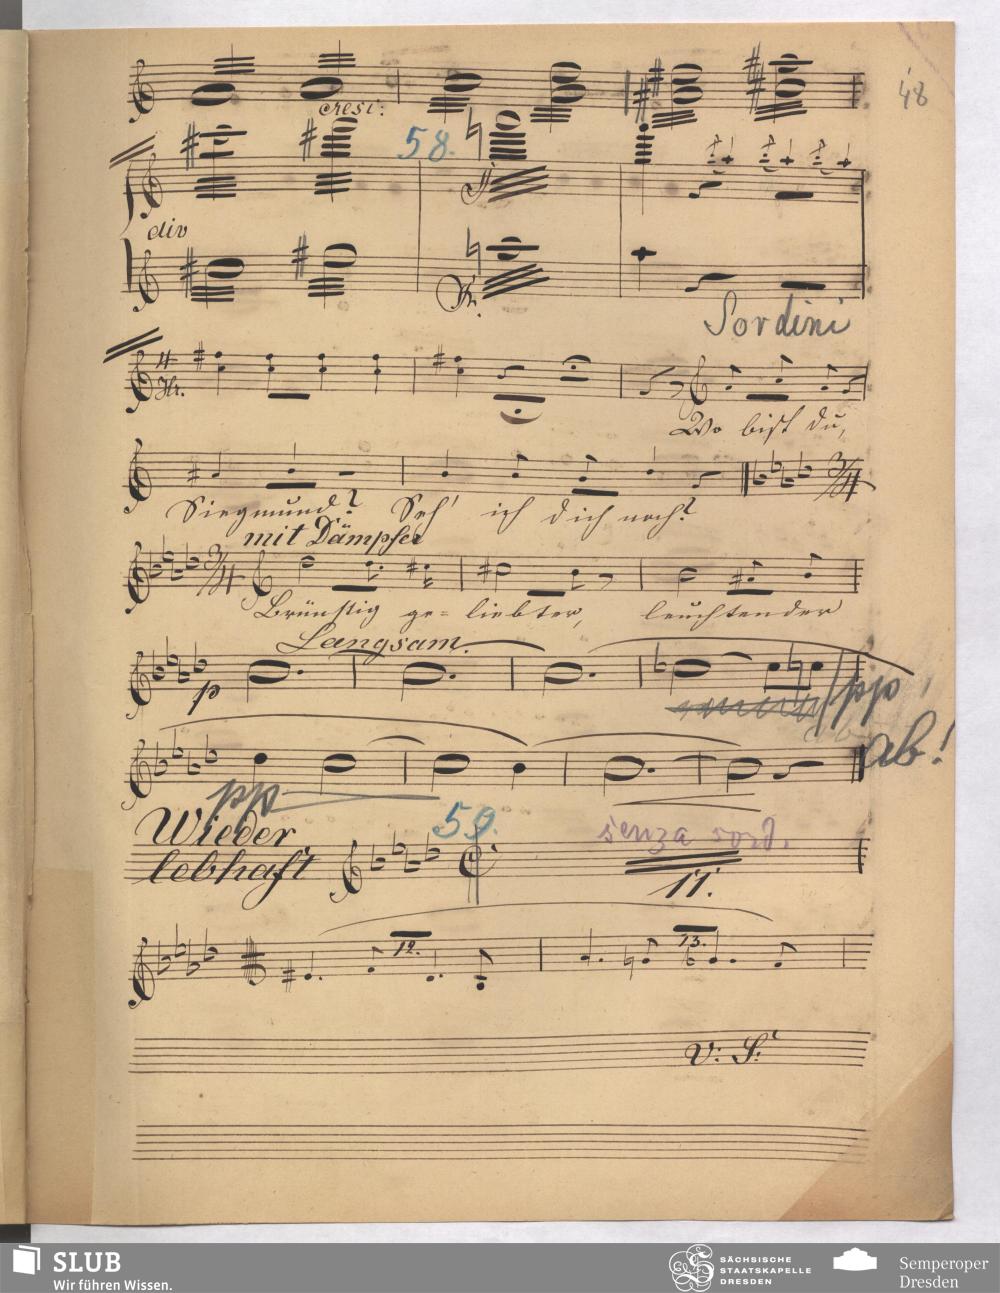 48
cresc:
58.
ff
div
ff.
Sordini
4
Hr.
Wo bist du,
Siegmund? Seh' ich dich noch?
3/4
mit Dämpfer
3/4
Brünstig ge- liebter, leuchtender
Langsam.
p
pp
ab!
pp
Wieder
lebhaft
59.
senza sord.
11.
12.
13.
V: S:
SLUB
Wir führen Wissen.
SÄCHSISCHE
STAATSKAPELLE
DRESDEN
Semperoper
Dresden